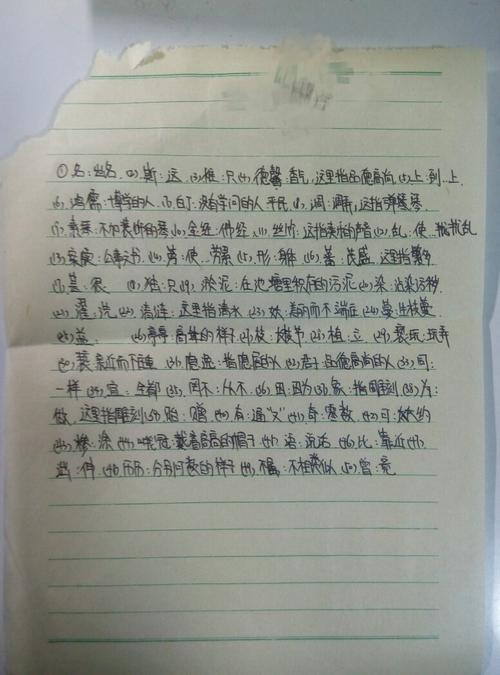 ①名：出名 (2)斯：这 (3)惟：只 (4)德馨：香气，这里指品德高尚 (5)上：到..上
(6)鸿儒：博学的人 (7)白丁：没有学问的人 平民 (8)调：调弄，这指弹琴
(9)素琴：不加装饰的琴 (10)金经：佛经 (11)丝竹：这指奏乐的声音 (12)乱：使..扰乱
(13)案牍：公事文书 (14)劳：使..劳累 (15)形：躯 (16)蕃：茂盛，这里指繁多
(17)甚：很 (18)独：只 (19)淤泥：在池塘里积存的污泥 (20)染：沾染污秽
(21)濯：洗 (22)清涟：这里指清水 (23)妖：美丽而不端庄 (24)蔓：生枝蔓
(25)益 (26)亭亭：高耸的样子 (27)枝：枝节 (28)植：立 (29)亵玩：玩弄
亲近而不庄重 (31)隐逸：指隐居的人 (32)君子：品德高尚的人 (33)同：
一样 (34)宜：全都 (35)罔不：从不 (36)因：因为 (37)象：指雕刻 (38)为：
做，这里指雕刻 (39)贻：赠 (40)有：通“又” (41)奇：零数 (42)可：大约
(43)糁：涂 (44)峨冠：戴着高高的帽子 (45)：沉迷 (46)比：靠近 (47)
件 (48)历历：分明可数的样子 (49)不属：不相类似 (50)曾：竟